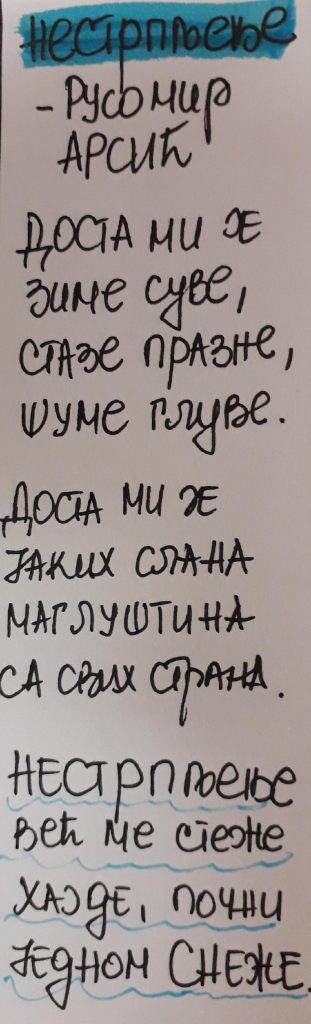 НЕСТРПЉЕЊЕ
- РУСОМИР
АРСИЋ
ДОСТА МИ ЈЕ
ЗИМЕ СУВЕ,
СТАЗЕ ПРАЗНЕ,
ШУМЕ ГЛУВЕ.
ДОСТА МИ ЈЕ
ЈАКИХ СЛАНА
МАГЛУШТИНА
СА СВИХ СТРАНА.
НЕСТРПЉЕЊЕ
ВЕЋ МЕ СТЕЖЕ
ХАЈДЕ, ПОЧНИ
ЈЕДНОМ СНЕЖЕ.